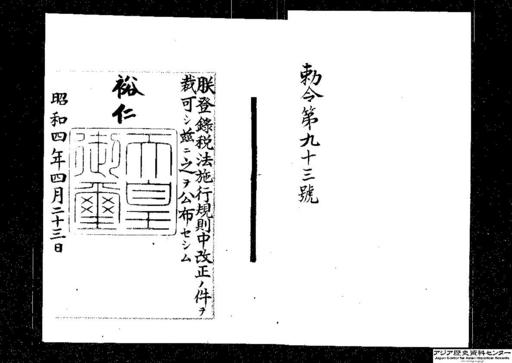 勅令第九十三號
朕登錄税法施行規則中改正ノ件ヲ
裁可シ玆ニ之ヲ公布セシム
裕仁
天皇御璽
昭和四年四月二十三日
アジア歴史資料センター
Japan Center for Asian Historical Records